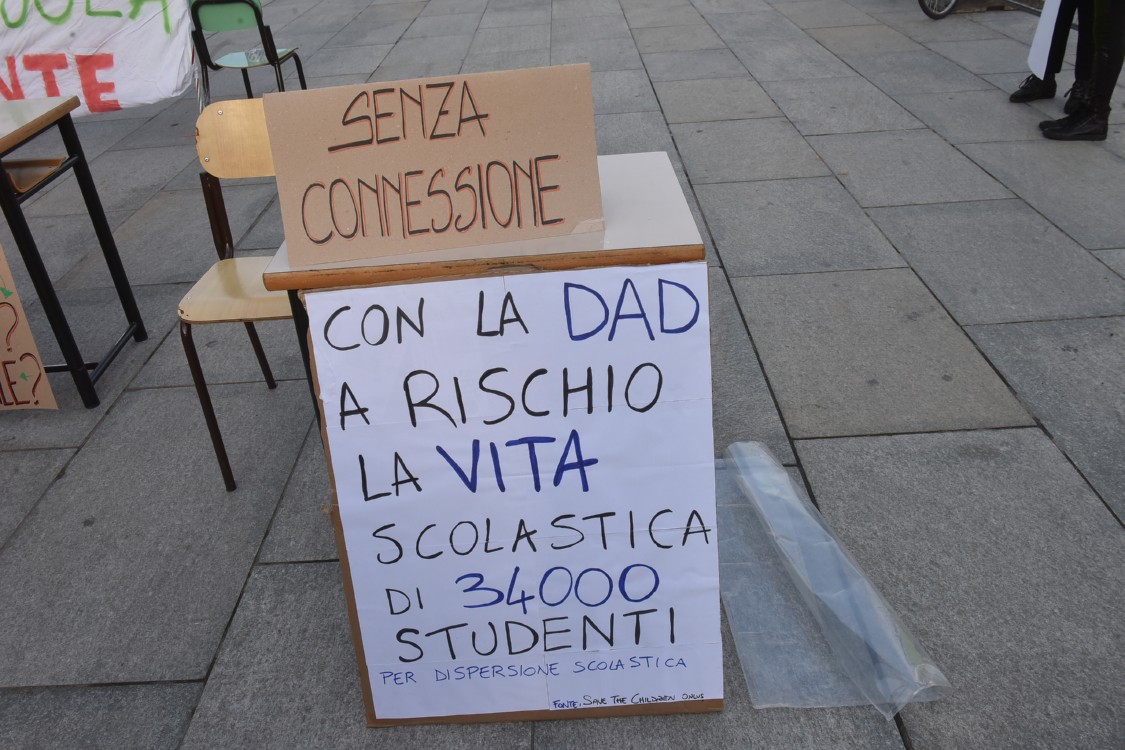 NTE
SENZA
CONNESSIONE
CON LA DAD
A RISCHIO
LA VITA
SCOLASTICA
DI 34000
STUDENTI
PER DISPERSIONE SCOLASTICA
FONTE. SAVE THE CHILDREN ONLUS
?
?